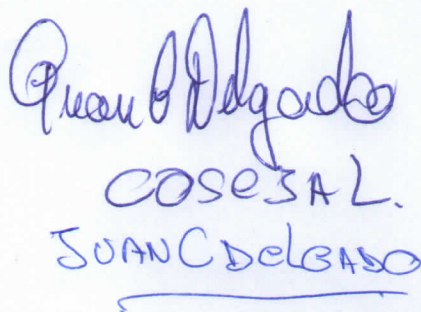 Juan C Delgado
COSEJAL.
JUAN C DELGADO